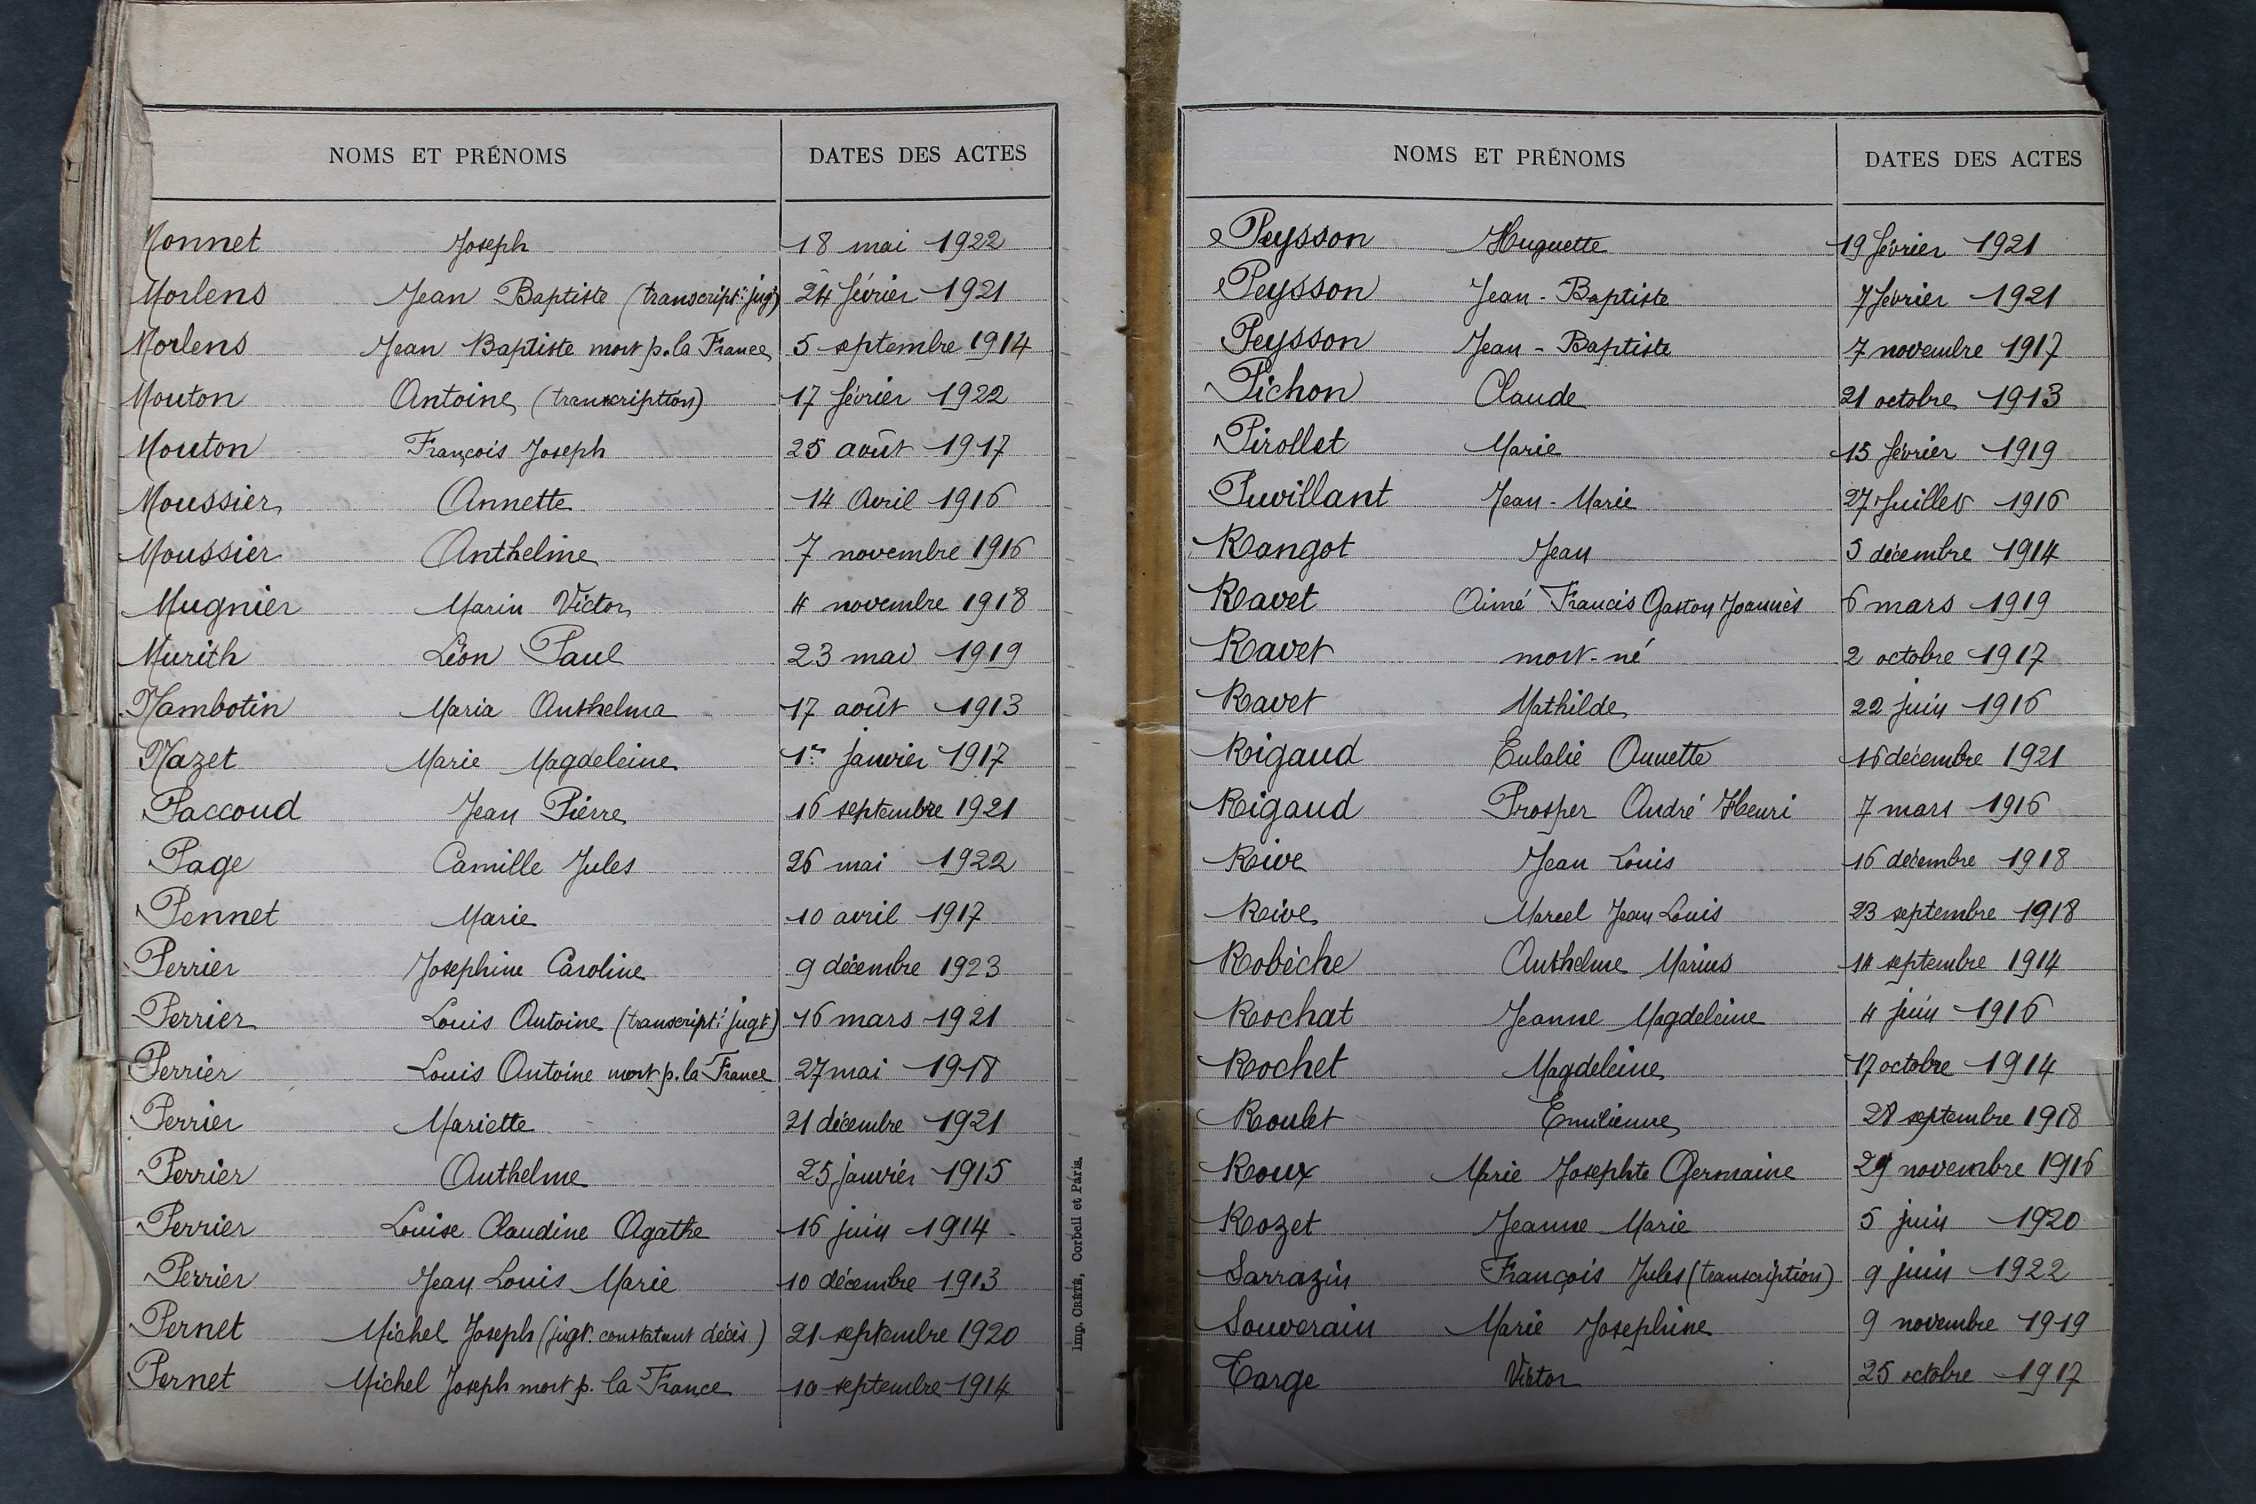 NOMS ET PRÉNOMS DATES DES ACTES
Monnet Joseph 18 mai 1922
Morlens Jean Baptiste (transcript: jugt) 24 février 1921
Morlens Jean Baptiste mort p. la France 5 septembre 1914
Mouton Antoine (transcription) 17 février 1922
Mouton François Joseph 25 août 1917
Moussier Annette 14 Avril 1916
Moussier Anthelme 7 novembre 1916
Mugnier Marin Victor 4 novembre 1918
Murith Léon Paul 23 mai 1919
Nambotin Maria Anthelma 17 août 1913
Nazet Marie Magdeleine 1er janvier 1917
Paccoud Jean Pierre 16 septembre 1921
Page Camille Jules 26 mai 1922
Pennet Marie 10 avril 1917
Perrier Josephine Caroline 9 décembre 1923
Perrier Louis Antoine (transcript: jugt) 16 mars 1921
Perrier Louis Antoine mort p. la France 27 mai 1918
Perrier Mariette 21 décembre 1921
Perrier Anthelme 25 janvier 1915
Perrier Louise Claudine Agathe 16 juin 1914
Perrier Jean Louis Marie 10 décembre 1913
Pernet Michel Joseph (jugt. constatant décès) 21 septembre 1920
Pernet Michel Joseph mort p. la France 10 septembre 1914
Imp. CRÉTÉ, Corbeil et Paris.
NOMS ET PRÉNOMS DATES DES ACTES
Peysson Huguette 19 février 1921
Peysson Jean-Baptiste 7 février 1921
Peysson Jean-Baptiste 7 novembre 1917
Pichon Claude 21 octobre 1913
Pirollet Marie 15 février 1919
Puvillant Jean-Marie 27 Juillet 1916
Rangot Jean 5 décembre 1914
Ravet Aimé Francis Gaston Joannès 6 mars 1919
Ravet mort-né 2 octobre 1917
Ravet Mathilde 22 juin 1916
Rigaud Eulalie Annette 16 décembre 1921
Rigaud Prosper André Henri 7 mars 1916
Rive Jean Louis 16 décembre 1918
Rive Marcel Jean Louis 23 septembre 1918
Robèche Anthelme Marius 14 septembre 1914
Rochat Jeanne Magdeleine 4 juin 1916
Rochet Magdeleine 17 octobre 1914
Roulet Emilienne 28 septembre 1918
Roux Marie Josephte Germaine 29 novembre 1916
Rozet Jeanne Marie 5 juin 1920
Sarrazin François Jules (transcription) 9 juin 1922
Souverain Marie Josephine 9 novembre 1919
Targe Victor 25 octobre 1917